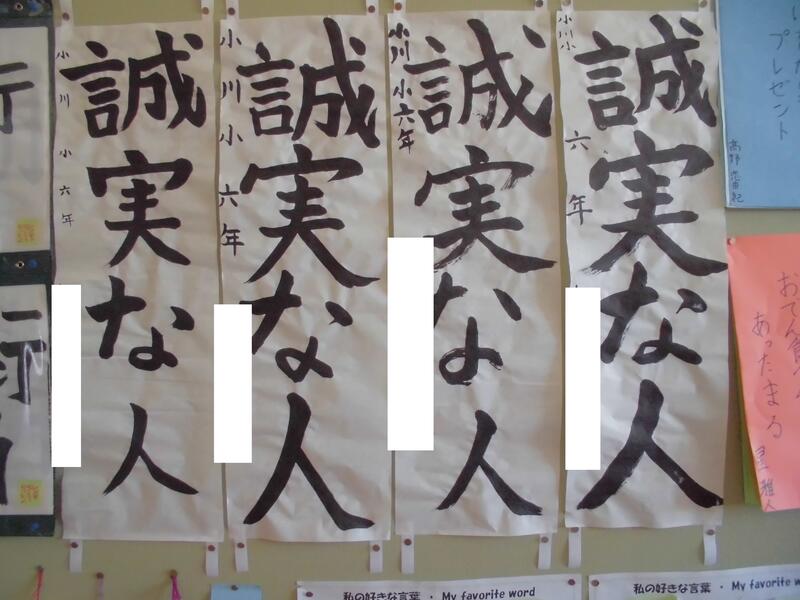 誠実な人
小川小 六年
誠実な人
小川小 六年
誠実な人
小川小六年
誠実な人
小川小 六年
プレゼント
おでん
あったまる
私の好きな言葉 ・ My favorite word
私の好きな言葉 ・ My favorite w